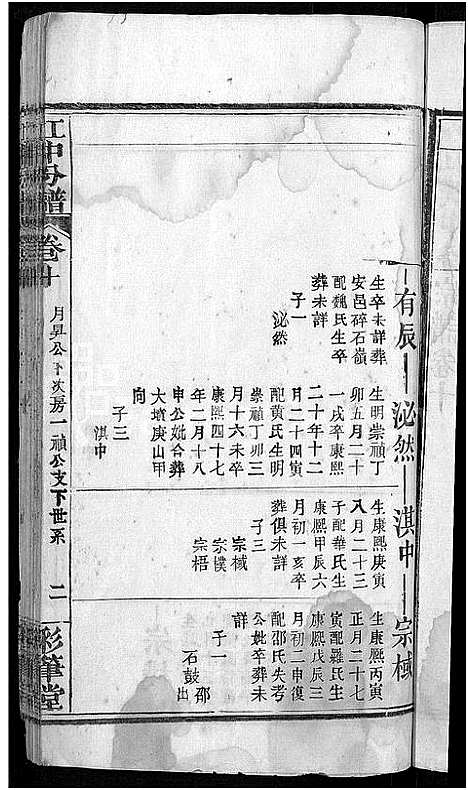 有辰
生卒未詳葬
安邑碎石嶺
配魏氏生卒
葬未詳
子一
泌然
泌然
生明崇禎丁
卯五月二十
一戌卒康熙
二十年十二
月二十四寅
配黄氏生明
崇禎丁卯三
月十六未卒
康熙四十七
年二月十八
申公妣合葬
大墳庚山甲
向
子三
淇中
淇中
生康熙庚寅
八月二十三
子配華氏生
康熙甲辰六
月初一亥卒
葬俱未詳
子三
宗棫
宗樸
宗梧
宗棫
生康熙丙寅
正月二十七
寅配羅氏生
康熙戊辰三
月初二申復
配邵氏失考
公妣卒葬未
詳
子一
石鼓 邵出
江中分譜
卷十
月昇公下次房一禎公支下世系
二
彩筆堂